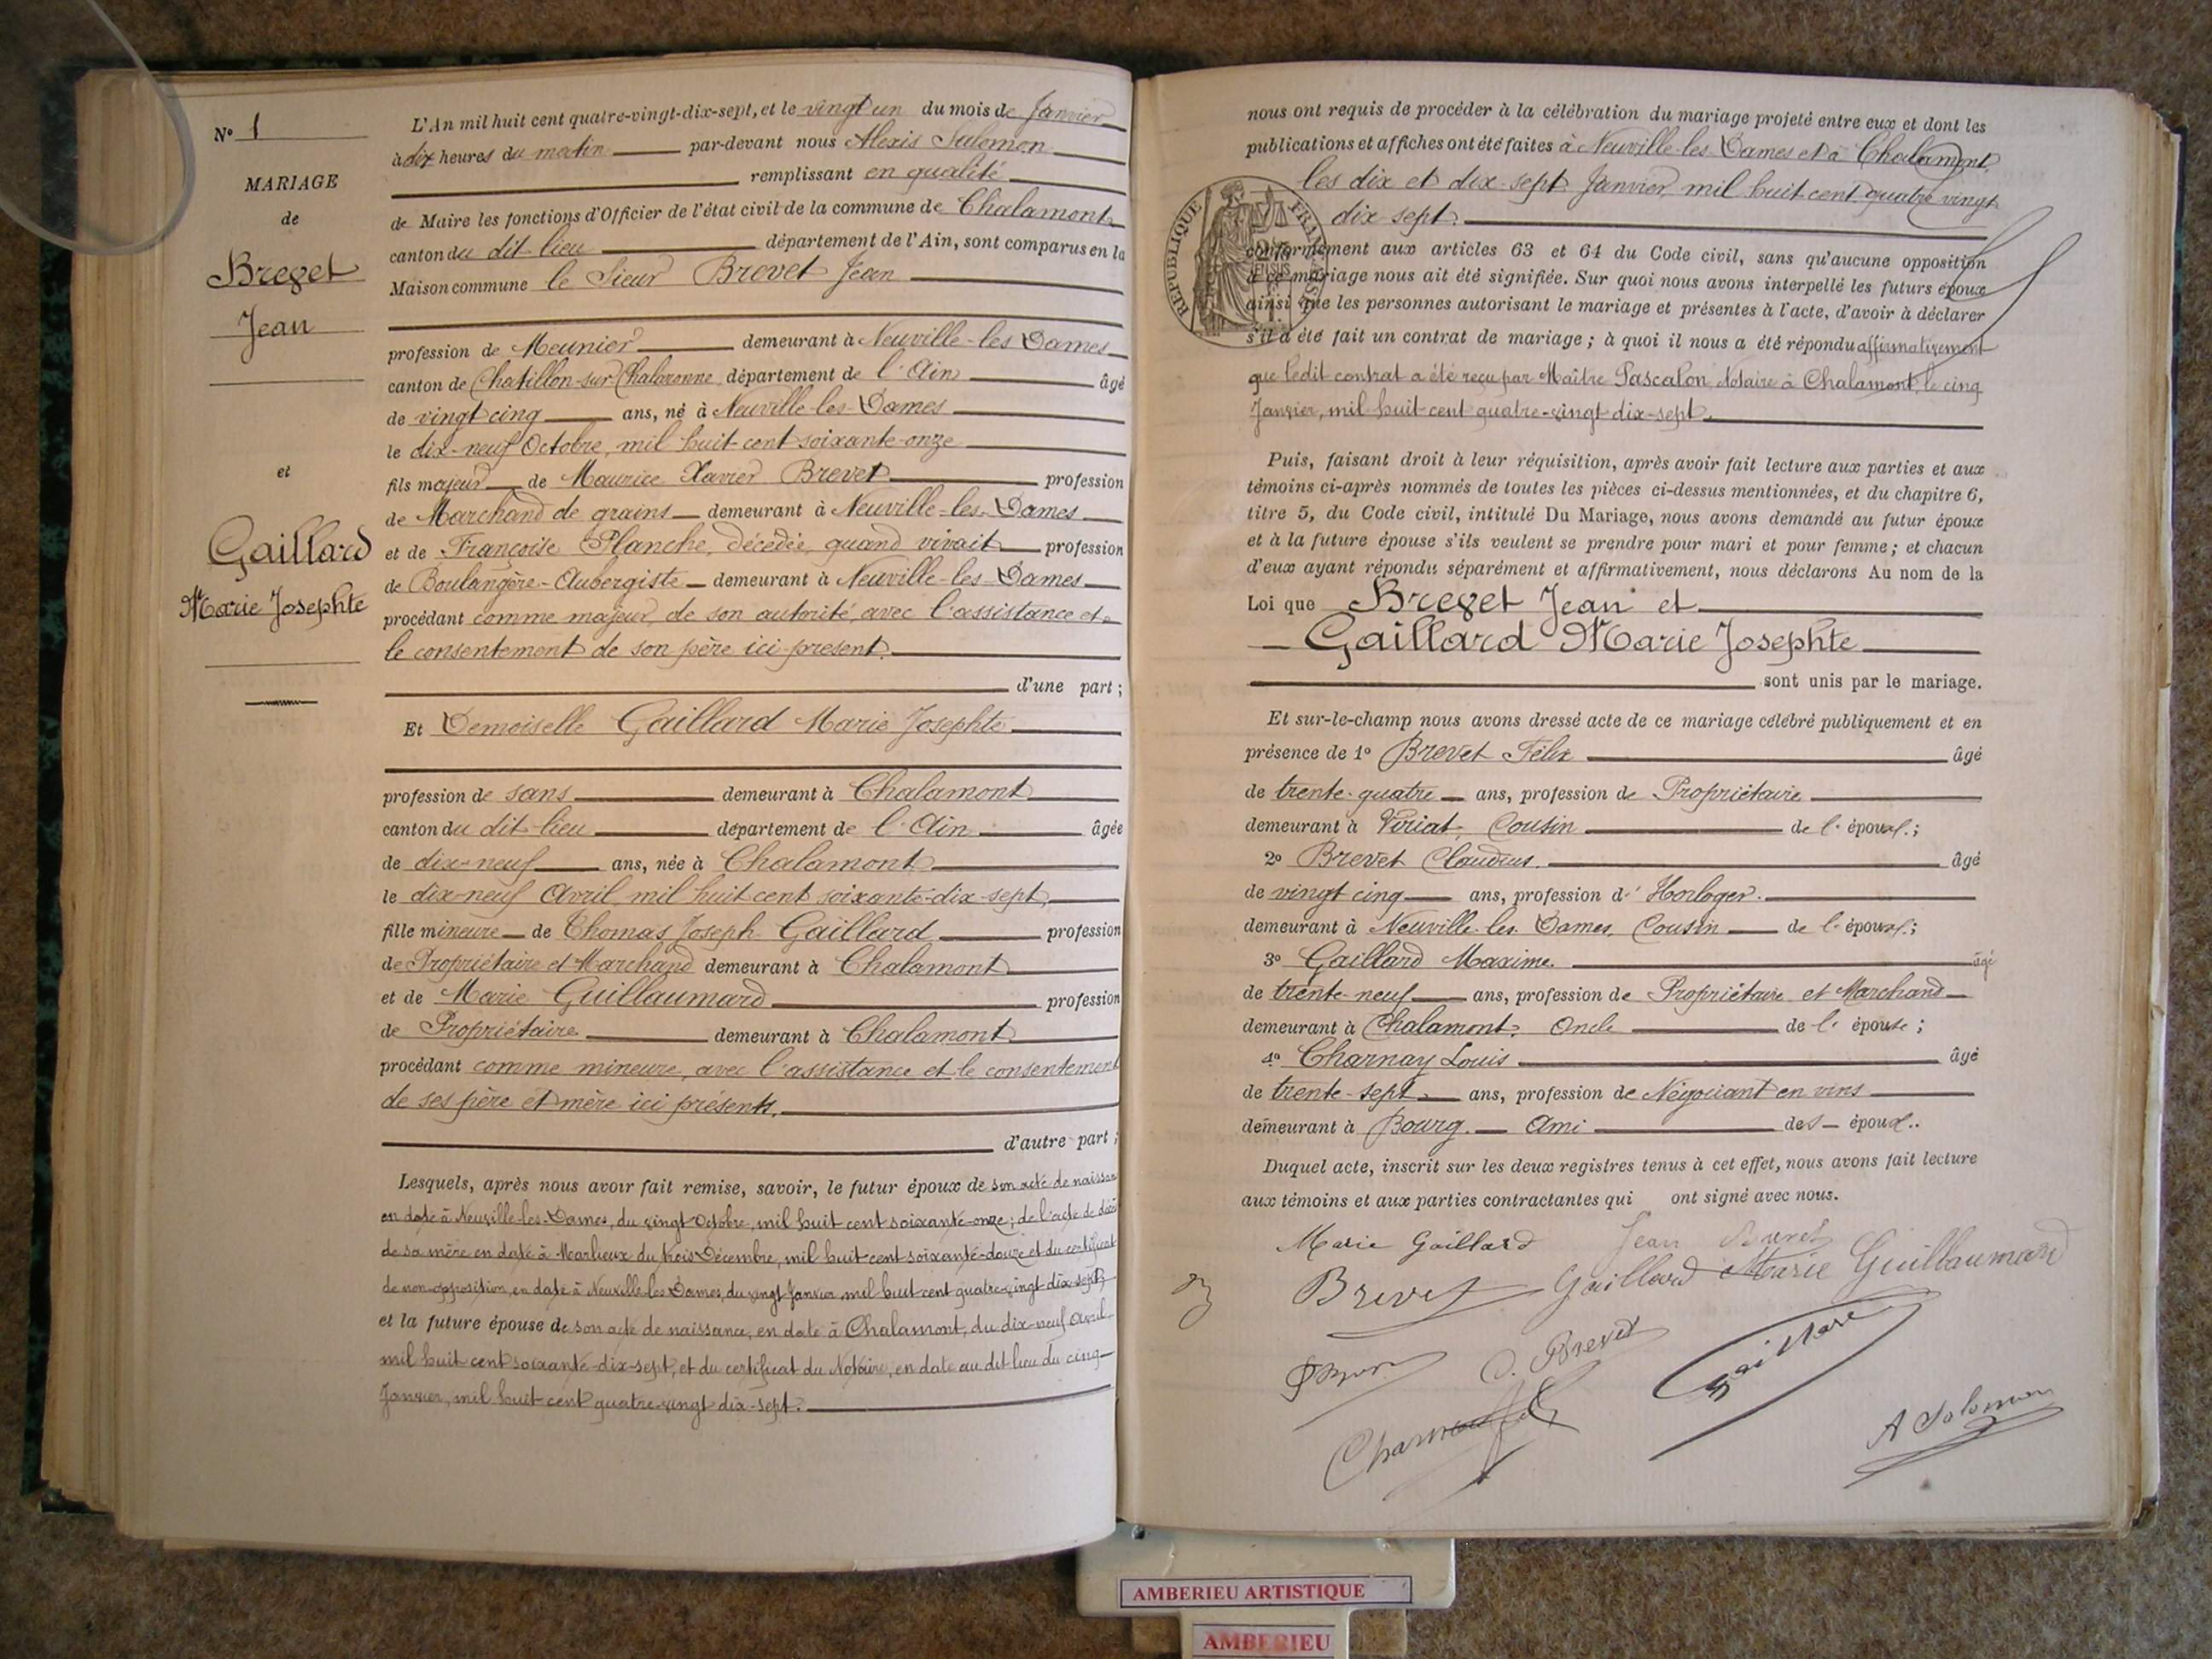 N° 1
MARIAGE
de
Brevet
Jean
et
Gaillard
Marie Josephte
L'An mil huit cent quatre-vingt-dix-sept, et le vingt un du mois de Janvier
à dix heures du matin par-devant nous Alexis Salomon
remplissant en qualité
de Maire les fonctions d'Officier de l'état civil de la commune de Chalamont
canton du dit lieu département de l'Ain, sont comparus en la
Maison commune le Sieur Brevet Jean
profession de Meunier demeurant à Neuville-les-Dames
canton de Chatillon-sur-Chalaronne département de l'Ain âgé
de vingt cinq ans, né à Neuville-les-Dames
le dix-neuf Octobre, mil huit cent soixante-onze
fils majeur de Maurice Xavier Brevet profession
de Marchand de grains demeurant à Neuville-les-Dames
et de Françoise Planche, décédée, quand vivait profession
de Boulangère-Aubergiste demeurant à Neuville-les-Dames
procédant comme majeur, de son autorité, avec l'assistance et
le consentement de son père ici présent.
d'une part;
Et Demoiselle Gaillard Marie Josephte
profession de sans demeurant à Chalamont
canton du dit lieu département de l'Ain âgée
de dix-neuf ans, née à Chalamont
le dix-neuf Avril mil huit cent soixante-dix-sept,
fille mineure de Thomas Joseph Gaillard profession
de Propriétaire et Marchand demeurant à Chalamont
et de Marie Guillaumard profession
de Propriétaire demeurant à Chalamont
procédant comme mineure, avec l'assistance et le consentement
de ses père et mère ici présents.
d'autre part;
Lesquels, après nous avoir fait remise, savoir, le futur époux de son acte de naissance
en date à Neuville-les-Dames, du vingt Octobre, mil huit cent soixante-onze; de l'acte de décès
de sa mère en date à Marlieux du trois Décembre, mil huit cent soixante-douze et du certificat
de non-opposition, en date à Neuville-les-Dames, du vingt Janvier mil huit cent quatre-vingt-dix-sept;
et la future épouse de son acte de naissance, en date à Chalamont, du dix-neuf Avril
mil huit cent soixante-dix-sept, et du certificat du Notaire, en date au dit lieu du cinq
Janvier, mil huit cent quatre-vingt dix-sept.
nous ont requis de procéder à la célébration du mariage projeté entre eux et dont les
publications et affiches ont été faites à Neuville-les-Dames et à Chalamont,
les dix et dix-sept Janvier, mil huit cent quatre vingt
dix sept.
REPUBLIQUE FRANÇAISE
conformément aux articles 63 et 64 du Code civil, sans qu'aucune opposition
à ce mariage nous ait été signifiée. Sur quoi nous avons interpellé les futurs époux
ainsi que les personnes autorisant le mariage et présentes à l'acte, d'avoir à déclarer
s'il a été fait un contrat de mariage; à quoi il nous a été répondu affirmativement
que ledit contrat a été reçu par Maître Pascalon, Notaire à Chalamont, le cinq
Janvier, mil huit cent quatre-vingt dix-sept.
Puis, faisant droit à leur réquisition, après avoir fait lecture aux parties et aux
témoins ci-après nommés de toutes les pièces ci-dessus mentionnées, et du chapitre 6,
titre 5, du Code civil, intitulé Du Mariage, nous avons demandé au futur époux
et à la future épouse s'ils veulent se prendre pour mari et pour femme; et chacun
d'eux ayant répondu séparément et affirmativement, nous déclarons Au nom de la
Loi que Brevet Jean et
Gaillard Marie Josephte
sont unis par le mariage.
Et sur-le-champ nous avons dressé acte de ce mariage célébré publiquement et en
présence de 1° Brevet Félix âgé
de trente-quatre ans, profession de Propriétaire
demeurant à Viriat, Cousin de l'époux;
2° Brevet Claudius âgé
de vingt cinq ans, profession d'Horloger.
demeurant à Neuville-les-Dames, Cousin de l'époux;
3° Gaillard Maxime. âgé
de trente-neuf ans, profession de Propriétaire et Marchand
demeurant à Chalamont, Oncle de l'épouse;
4° Charnay Louis âgé
de trente-sept ans, profession de Négociant en vins
demeurant à Bourg. Ami des époux.
Duquel acte, inscrit sur les deux registres tenus à cet effet, nous avons fait lecture
aux témoins et aux parties contractantes qui ont signé avec nous.
Marie Gaillard Jean Brevet
Brevet Gaillard Marie Guillaumard
C. Brevet Gaillard
A Salomon
AMBERIEU ARTISTIQUE
AMBERIEU